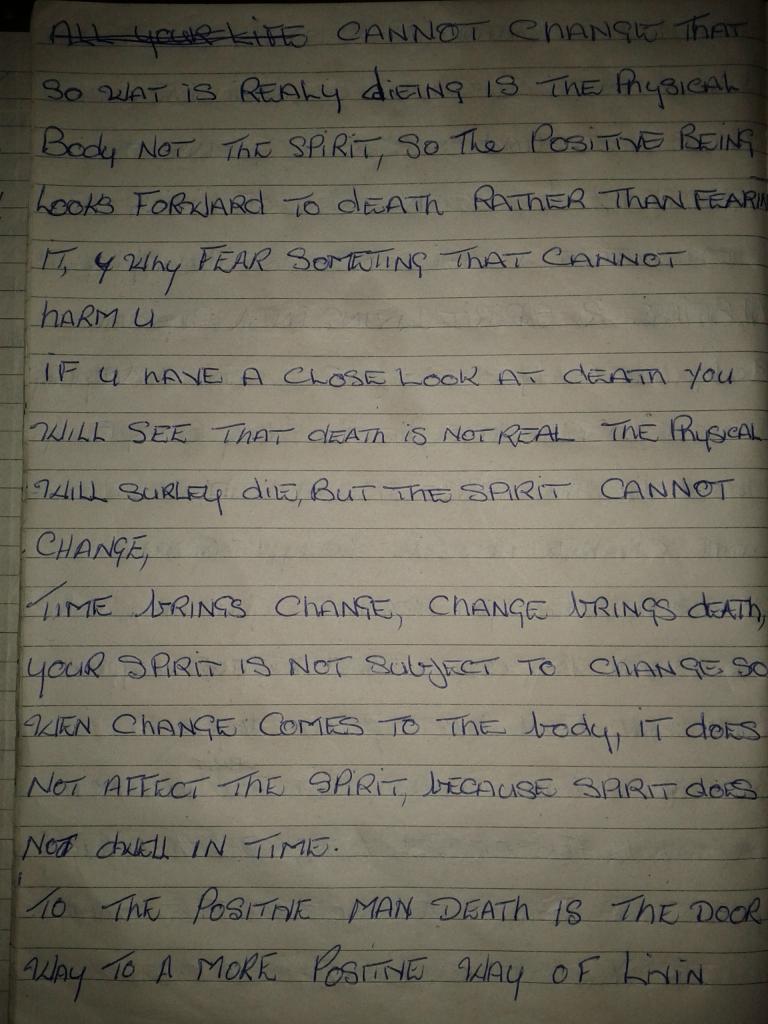 ALL YOUR LIFE CANNOT CHANGE THAT
SO WAT IS REALY dIEING IS THE PHYSICAL
BODY NOT THE SPIRIT, SO THE POSITIVE BEING
LOOKS FORWARD TO DEATH RATHER THAN FEARIN
IT, Y WHY FEAR SOMETING THAT CANNOT
HARM U
IF U HAVE A CLOSE LOOK AT DEATH YOU
WILL SEE THAT DEATH IS NOT REAL THE PHYSICAL
WILL SURLEY DIE, BUT THE SPIRIT CANNOT
CHANGE,
TIME BRINGS CHANGE, CHANGE BRINGS DEATH,
YOUR SPIRIT IS NOT SUBJECT TO CHANGE SO
WEN CHANGE COMES TO THE BODY, IT DOES
NOT AFFECT THE SPIRIT, BECAUSE SPIRIT DOES
NOT DWELL IN TIME.
TO THE POSITIVE MAN DEATH IS THE DOOR
WAY TO A MORE POSITIVE WAY OF LIVIN